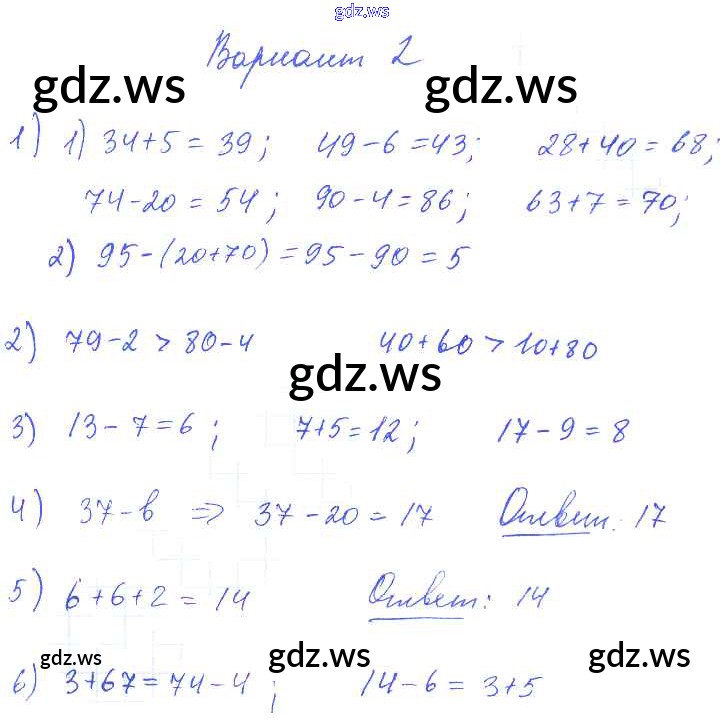 gdz.ws
Вариант 2
gdz.ws gdz.ws
1) 1) 34+5=39; 49-6=43; 28+40=68;
74-20=54; 90-4=86; 63+7=70;
2) 95-(20+70)=95-90=5
2) 79-2 > 80-4 40+60 > 10+80
gdz.ws
3) 13-7=6; 7+5=12; 17-9=8
4) 37-в ⇒ 37-20=17 Ответ: 17
5) 6+6+2=14 Ответ: 14
gdz.ws gdz.ws gdz.ws
6) 3+67=74-4; 14-6=3+5